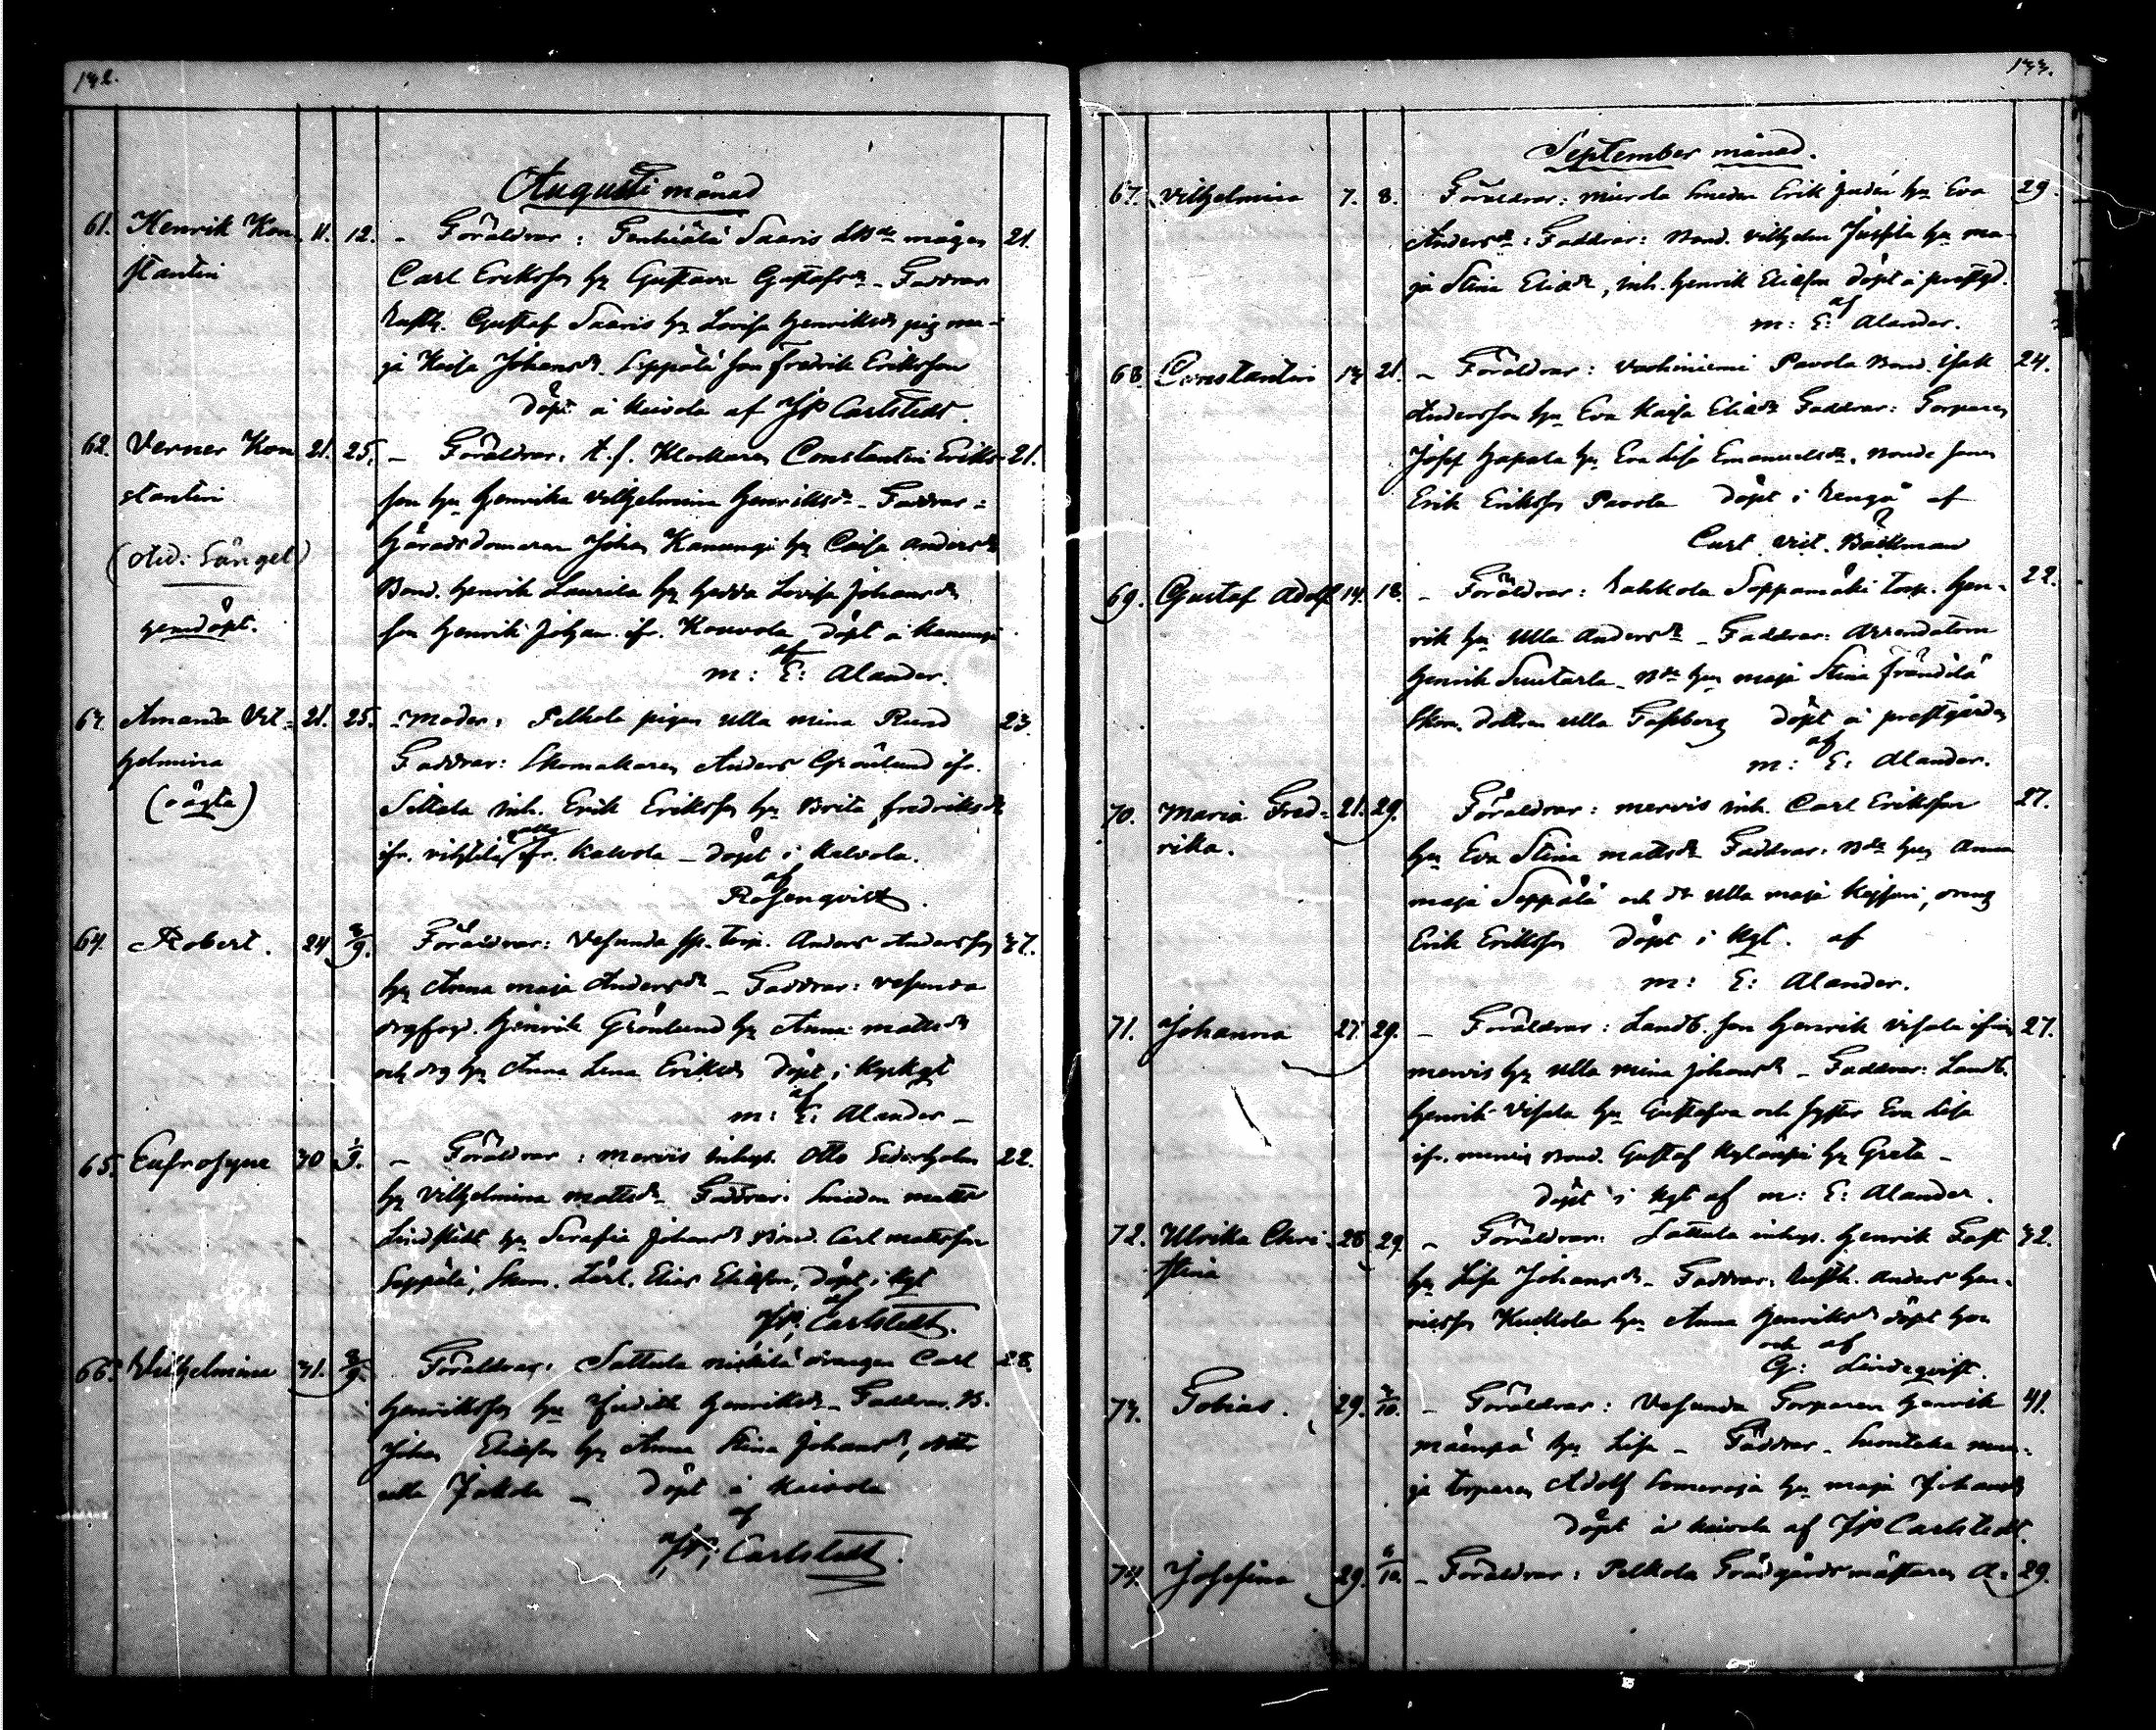 132.
Augusti månad
61. Henrik Kon- 11. 12. - Föräldrar: Saaris måger 21.
stantin Carl Eriksson hu Gustava Gustafsdr - Faddrar
Rusth. Gustaf Saaris hu Lovisa Henriksdr pig ma-
ja Kaisa Johansdr. Seppälä son Fredrik Eriksson
döpt å Keivola af JP Carlstedt.
62. Verner Kon 21. 25. - Föräldrar: t.f. Klockaren Constantin Eriks- 21.
stantin son hu Henrika Vilhelmina Henriksdr - Faddrar:
Häradsdomaren Johan hu Caisa Andersdr
(Oäd: Sängel) Bond. Henrik Laurila hu Hedda Lovisa Johansdr
nemdöpt. son Henrik Johan ifr. döpt å
af
m: E: Alander.
63. Amanda Vil- 21. 25. - Moder: Pelkola pigan Ulla Mina Rund 23.
helmina Faddrar: Skomakaren Anders Grönlund ifr.
(oägta) Sittala inh. Erik Eriksson hu Brita Fredriksdr
ifr. ifr. Kalvola - döpt i Kalvola.
af
Rosenqvist.
64. Robert. 24 3/9. Föräldrar: Vesunda torp. Anders Andersson 37.
hu Anna Maja Andersdr - Faddrar: Vesunda
Henrik Grönlund hu Anna Mattsdr
och drg hu Anna Lena Eriksdr döpt i Kyrkgt
af
m: E: Alander -
65. Eufrosyne 30 1/9. - Föräldrar: Mervis inhys. Otto Sederholm 22.
hu Vilhelmina Mattsdr - Faddrar: Smeden Matts
Lindstedt hu Serafia Johansdr Bond. Carl Mattsson
Seppälä, Skom. Lärl. Elias Eliasson, döpt i Kgt
af
JP; Carlstedt.
66. Vilhelmina 31. 3/9. Föräldrar: Sattula Niskilä drängen Carl 28.
Henriksson hu Judith Henriksdr - Faddrar. B.
Johan Eliasson hu Anna Stina Johansdr,
Ulla Jokela - döpt å Keivola
af
JP; Carlstedt.
133.
September månad.
67. Vilhelmina 7. 8. Föräldrar: Mierola Smeden Erik Judén hu Eva 29.
Andersdr: Faddrar: Bond. Vilhelm Jussila hu Ma-
ja Stina Eliasdr, inh. Henrik Eliasson döpt i prestgd.
af
m: E: Alander.
68. Constantin 13 21. - Föräldrar: Vachiniemi Pavola Bond. Isak 24.
Andersson hu Eva Kaisa Eliasdr Faddrar: Torparen
Josef Hapala hu Eva Lisa Emanuelsdr. Bonde sonen
Erik Eriksson Pavola döpt i Rengo af
Curt Vict. Bäckman
69. Gustaf Adolf 14. 18. - Föräldrar: Rahkola Soppamäki torp. Hen- 22.
rik hu Ulla Andersdr - Faddrar: Arrendatorn
Henrik Suutarla - Bde hu Maja Stina Frändilä
Skom. dottren Ulla Forsberg döpt å prestgården
af
m: E: Alander.
70. Maria Fred- 21. 29. Föräldrar: Mervis inh. Carl Eriksson 27.
rika. hu Eva Stina Mattsdr Faddrar: Bde hu Anna
Maja Seppälä och dr Ulla Maja, dreng
Erik Eriksson döpt i Kgt. af
m: E: Alander.
71. Johanna 27 29. - Föräldrar: Landb. son Henrik Visala ifrån 27.
Mervis hu Ulla Mina Johansdr - Faddrar: Landb.
Henrik Visala hu Gustafva och syster Eva Lisa
ifr. Mervis Bond. Gustaf Kylänpä hu Greta -
döpt i Kgt af m: E: Alander.
72. Ulrika Chri- 28 29. - Föräldrar: Sattula inhys. Henrik Fast 32.
stina hu Lisa Johansdr - Faddrar: Rusth. Anders Hen-
ricsson Kuckola hu Anna Henriksdr döpt hem
och af
G: Lindeqvist.
73. Tobias. 29. 3/10. - Föräldrar: Vesunda Torparen Henrik 41.
Mäenpä hu Lisa - Faddrar -
torparen Adolf Someroja hu Maja Johansdr
döpt å Keivola af JP Carlstedt
74. Josefina 29. 6/10. - Föräldrar: Pelkola Trädgårdsmästaren A- 29.